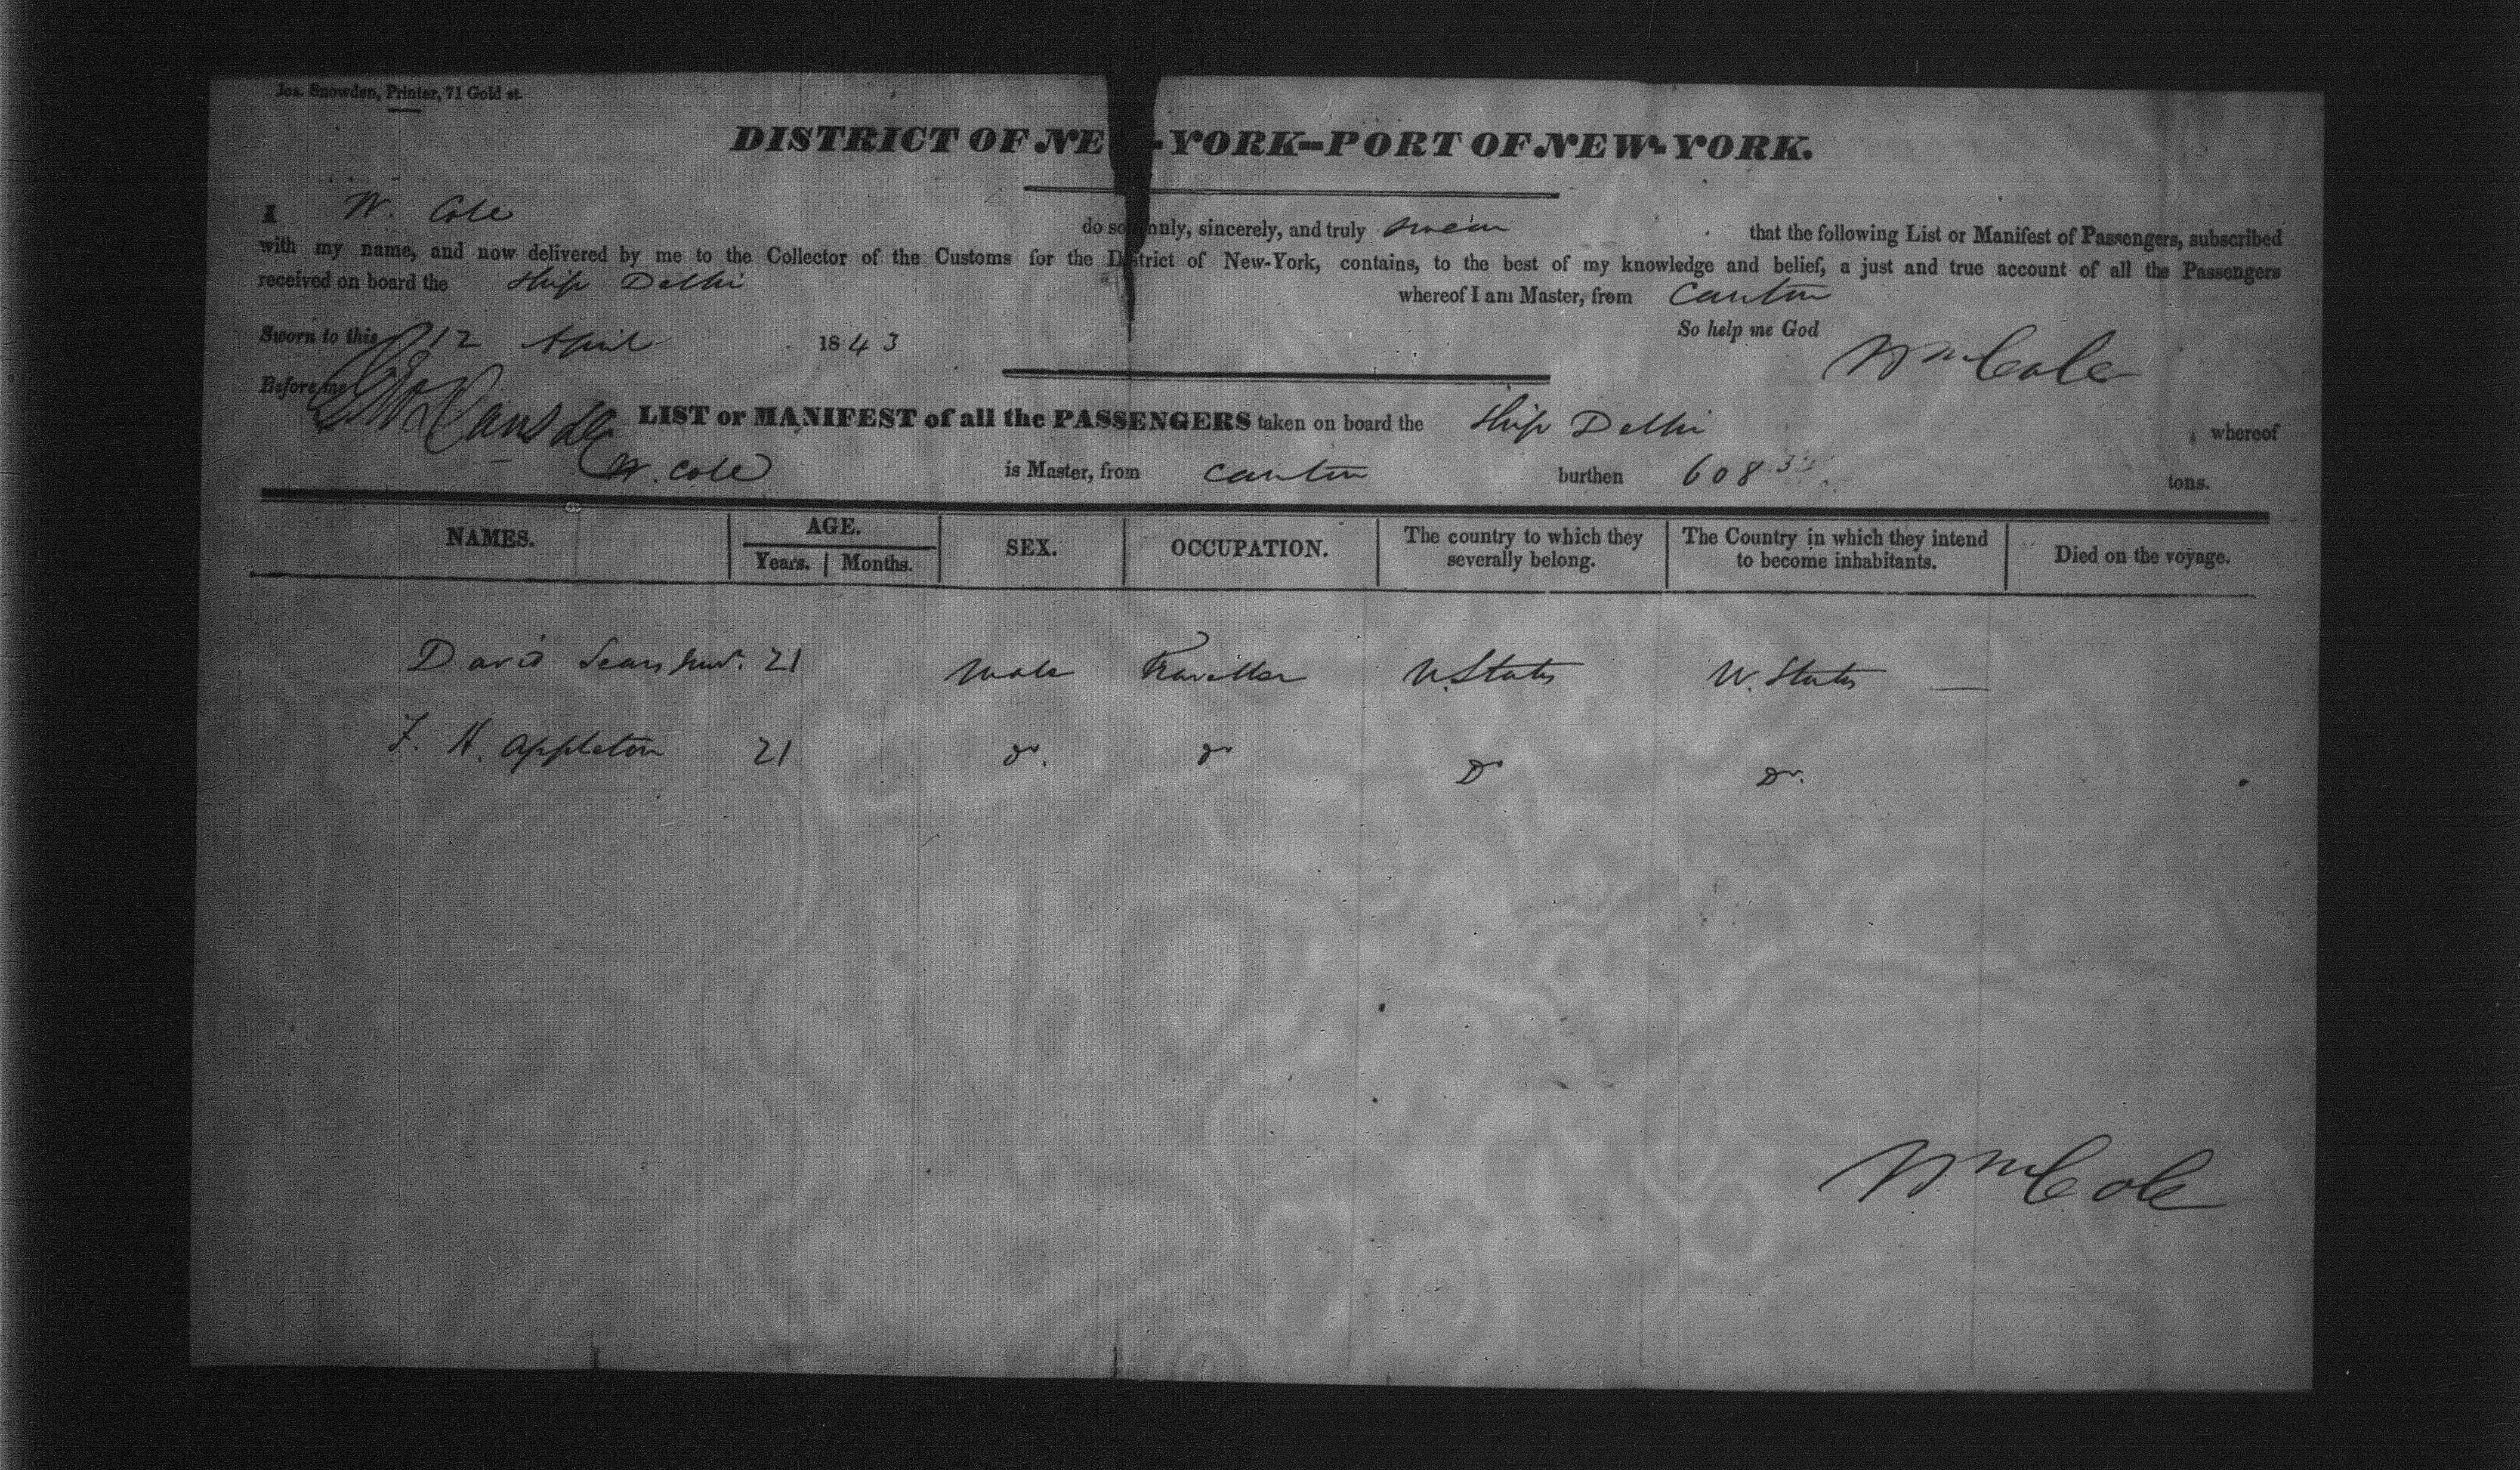 Jos. Snowden, Printer, 71 Gold st.
DISTRICT OF NE -YORK--PORT OF NEW-YORK.
I W. Cole do so nnly, sincerely, and truly swear that the following List or Manifest of Passengers, subscribed
with my name, and now delivered by me to the Collector of the Customs for the District of New-York, contains, to the best of my knowledge and belief, a just and true account of all the Passengers
received on board the Ship Delhi whereof I am Master, from Canton
Sworn to this 12 April 1843 So help me God
Wm Cole
Before me
LIST or MANIFEST of all the PASSENGERS taken on board the Ship Delhi whereof
W. Cole is Master, from Canton burthen 608 tons.
NAMES. AGE. Years. Months. SEX. OCCUPATION. The country to which they severally belong. The Country in which they intend to become inhabitants. Died on the voyage.
David Sears 21 Male Traveller U. States U. States —
F. H. Appleton 21 Do. Do Do Do.
Wm Cole